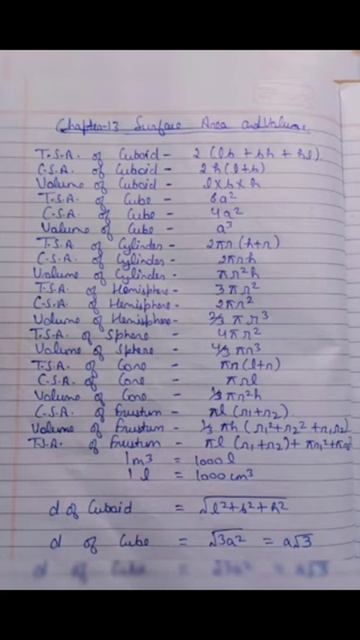 Chapter-13 Surface Area and Volume
T.S.A. of Cuboid - 2 (lb + bh + hl)
C.S.A. of Cuboid - 2h(l+b)
Volume of Cuboid - l×b×h
T.S.A. of Cube - 6a²
C.S.A. of Cube - 4a²
Volume of Cube - a³
T.S.A of Cylinder - 2πr(h+r)
C.S.A. of Cylinder - 2πrh
Volume of Cylinder - πr²h
T.S.A. of Hemisphere - 3πr²
C.S.A. of Hemisphere - 2πr²
Volume of Hemisphere - 2/3 πr³
T.S.A. of Sphere - 4πr²
Volume of Sphere - 4/3 πr³
T.S.A. of Cone - πr(l+r)
C.S.A. of Cone - πrl
Volume of Cone - 1/3πr²h
C.S.A. of Frustum - πl(r1+r2)
Volume of Frustum - 1/3 πh(r1²+r2²+r1r2)
T.S.A. of Frustum - πl(r1+r2)+πr1²+πr2²
1m³ = 1000 l
1 l = 1000 cm³
d of Cuboid = √l²+b²+h²
d of Cube = √3a² = a√3